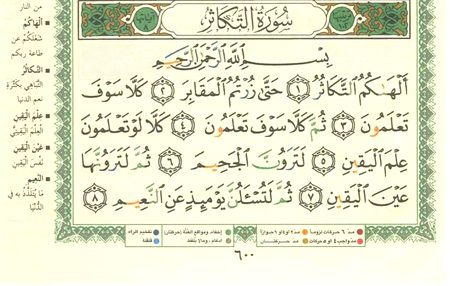 سُورَةُ التَّكَاثُرِ
بِسْمِ اللَّهِ الرَّحْمَٰنِ الرَّحِيمِ
أَلْهَىٰكُمُ التَّكَاثُرُ ١ حَتَّىٰ زُرْتُمُ الْمَقَابِرَ ٢ كَلَّا سَوْفَ
تَعْلَمُونَ ٣ ثُمَّ كَلَّا سَوْفَ تَعْلَمُونَ ٤ كَلَّا لَوْ تَعْلَمُونَ
عِلْمَ الْيَقِينِ ٥ لَتَرَوُنَّ الْجَحِيمَ ٦ ثُمَّ لَتَرَوُنَّهَا
عَيْنَ الْيَقِينِ ٧ ثُمَّ لَتُسْأَلُنَّ يَوْمَئِذٍ عَنِ النَّعِيمِ ٨
من النار
أَلْهَاكُمُ
شَغَلَكُمْ عن
طاعة ربكم
التَّكَاثُرُ
التَّبَاهِي بكَثْرَةِ
نعم الدنيا
عِلْمَ الْيَقِينِ
الْعِلْمَ الْيَقِينِيَّ
عَيْنَ الْيَقِينِ
نَفْسَ الْيَقِينِ
النَّعِيمِ
مَا يُتَلَذَّذُ بِهِ فِي
الدُّنْيَا
مدّ ٦ حركات لزوماً مدّ ٢ او ٤ او ٦ جوازاً إخفاء، ومواقع الغُنَّة (حركتان) تفخيم الراء
مدّ واجب ٤ او ٥ حركات مدّ حركتان ادغام، وما لا يُلفَظ قلقلة
٦٠٠